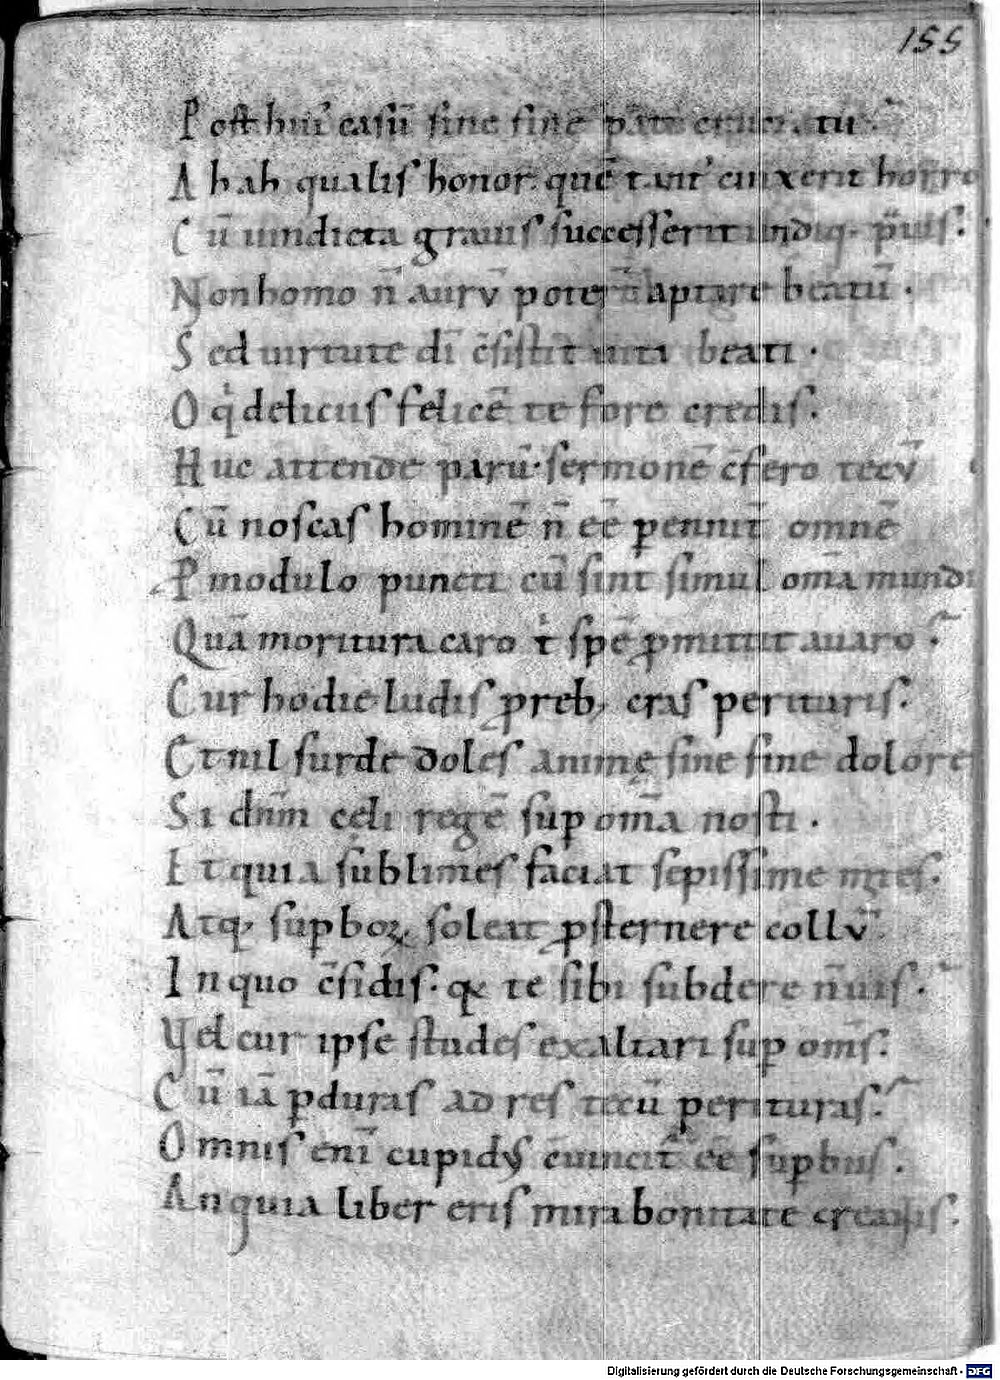 155
P ost hui' casū sine fine tu.
A hah qualis honor. quē tant' cinxerit horro
C ū uindicta grauis successerit undiq. p̄uis.
N on homo n̄ aurū poter̄ aptare beatū.
S ed uirtute dī c̄sistit uita beati.
O q' deliciis felicē te fore credis.
H uc attende parū. sermonē c̄fero tecū
C ū noscas hominē n̄ eē pennit̄ omnē
P modulo puncti cū sint simul om̄a mundi
Quā moritura caro t' spē pmittit auaro.
C ur hodie ludis preb; cras perituris.
Et nil surde doles animę sine fine dolore
S i dn̄m cęli regē sup om̄a nosti.
E t quia sublimes faciat sepissime
A tq; supboꝝ soleat psternere collū.
I n quo c̄fidis. qͥ te sibi subdere n̄uis.
Vel cur ipse studes exaltari sup om̄s.
C ū iā pduras ad res tecū perituras.
O mnis eni cupidꝰ c̄uincit̄ eē supbus.
An quia liber eris mira bonitate
Digitalisierung gefördert durch die Deutsche Forschungsgemeinschaft - DFG